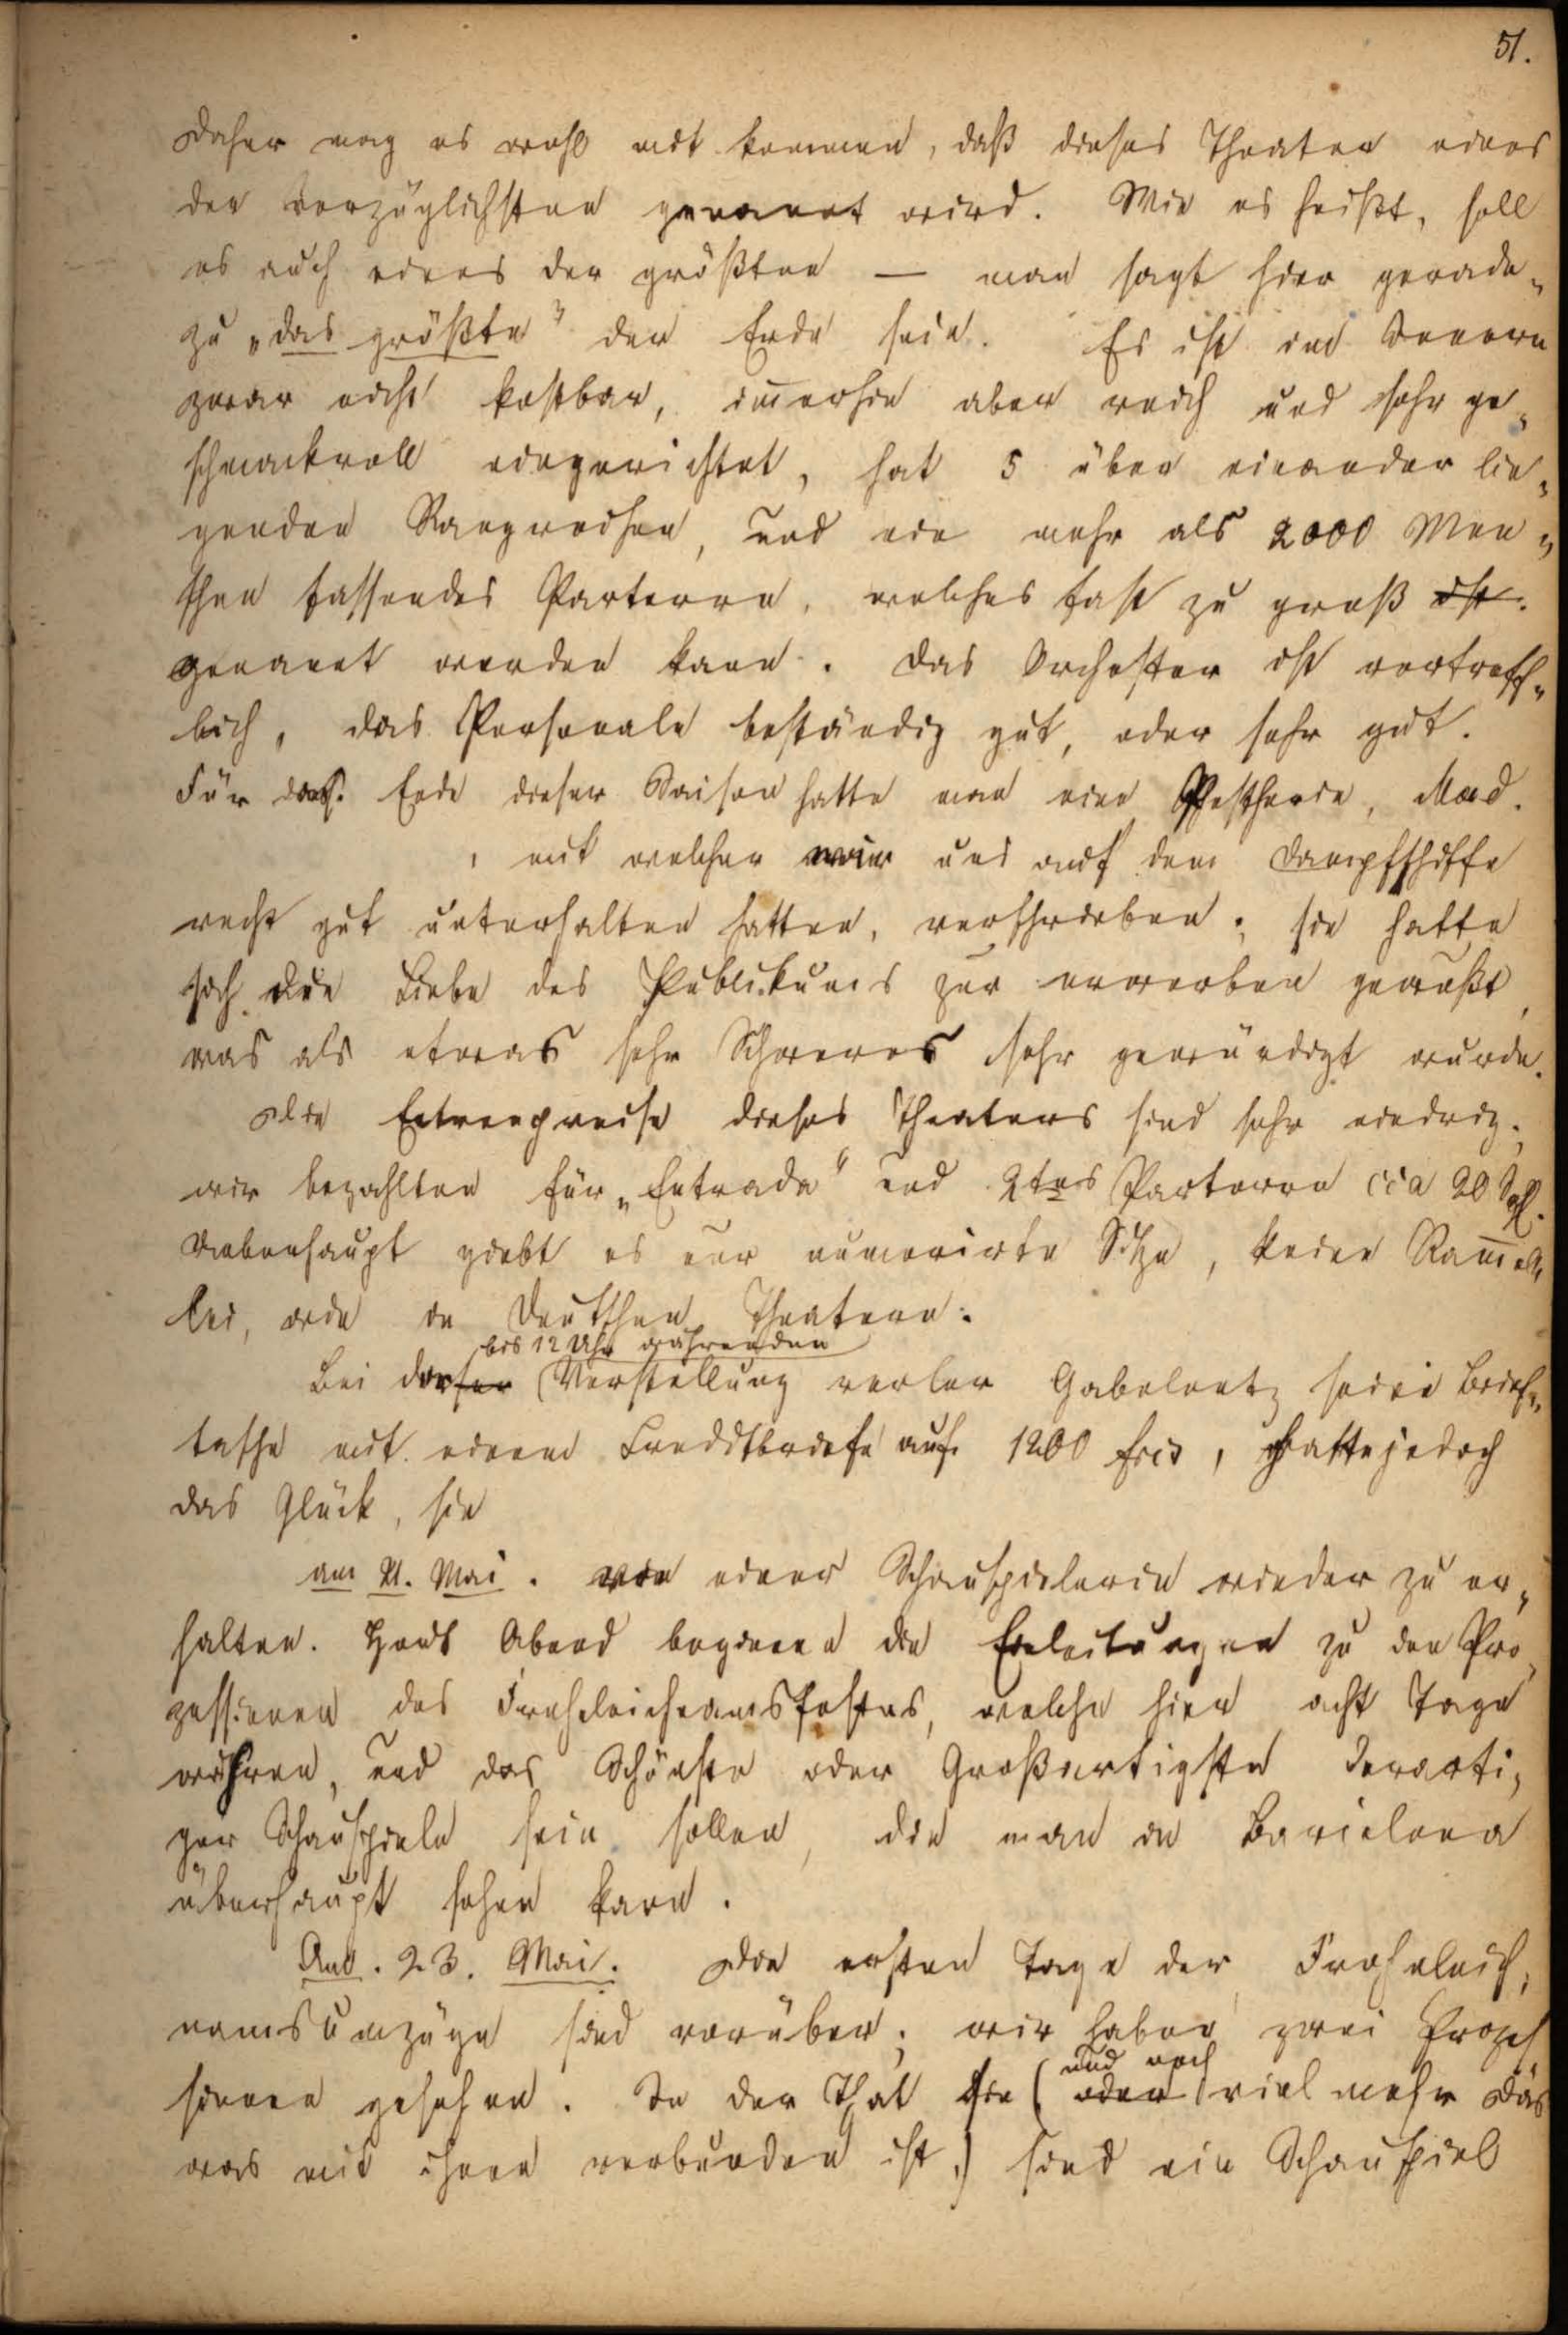 51.
Daher mag es wohl mit kommen, daß dieses Theater eines
der vorzüglichsten genannt wird. Wie es heißt, soll
es auch eines der größten — man sagt hier gerade„
zu „das größte" der Erde sein. Es ist im Innern
zwar nicht kostbar, im̅erhin aber reich und sehr ge„
schmackvoll eingerichtet, hat 5 über einander lie„
genden Rangreihen, und ein mehr als 2000 Men„
schen fassendes Parterre, welches fast zu groß ist.
genannt werden kann. Das Orchester ist vortreff„
lich, das Personale beständig gut, oder sehr gut.
Für das Ende dieser Saison hatte man eine Pestherin, Mad.
, mit welcher wir uns auf dem Dampfschiffe
recht gut unterhalten hatten, verschrieben; sie hatte
sich die Liebe des Publikums zu erwerben gewußt,
was als etwas sehr Schweres sehr gewürdigt wurde.
Die Entreepreise dieses Theaters sind sehr niedrig;
wir bezahlten für „Entrada" und 2tes Parterre cca 20
Ueberhaupt giebt es nur numerirte Sitze, keine Ram̅e„
lei, wie in Deutschen Theatern.
bis 12 Uhr währenden
Bei dieser Vorstellung verlor Gabelentz seine Brief„
tasche mit einem Creditbriefe auf 1200 frcs, hatte jedoch
das Glück, sie
am 21. Mai. von einer Schauspielerin wieder zu er„
halten. Heut Abend beginnen die Einleitungen zu den Pro„
zessionen des Frohnleichnamsfestes, welche hier acht Tage
währen, und das Schönste oder Großartigste derarti„
ger Schauspiele sein sollen, die man in Barcelona
überhaupt sehen kann.
Am. 23. Mai. Die ersten Tage der Frohnleich„
namsumzüge sind vorüber; wir haben zwei Prozes
sionen gesehen. In der That sie (oder viel mehr Das
und noch
was mit ihnen verbunden ist,) sind ein Schauspiel